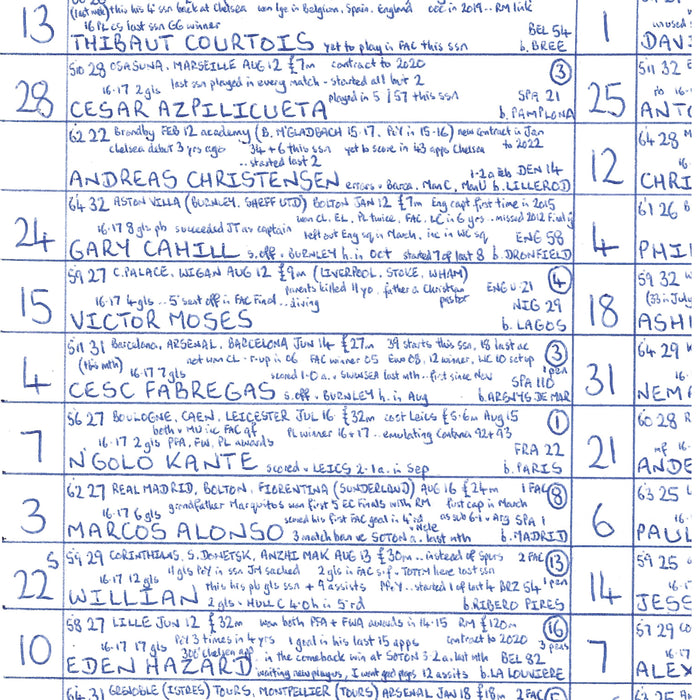 (last wk) this his 4 ssn back at Chelsea won lge in Belgium, Spain, England CCC in 2019.. RM link
16·17 CS last ssn GG winner BEL 54
13 THIBAUT COURTOIS yet to play in FAC this ssn b. BREE
1
DAVI
510 28 OSASUNA, MARSEILLE AUG 12 £7m contract to 2020 3
16·17 2 gls last ssn played in every match - started all but 2 SPA 21
28 CESAR AZPILICUETA played in 5 / 57 this ssn b. PAMPLONA
5 11 32
25
ANTO
62 22 Brondby FEB 12 academy (B. M'GLADBACH 15·17. PoY in 15-16) new contract in Jan
Chelsea debut 3 yrs ago 34+6 this ssn yet to score in 43 apps Chelsea to 2022
..started last 2 DEN 14
ANDREAS CHRISTENSEN errors v Barca, Man C, Man U b. LILLEROD
64 28
12
CHRI
64 32 ASTON VILLA (BURNLEY, SHEFF UTD) BOLTON JAN 12 £7m Eng capt first time in 2015
won CL, EL, PL twice, FAC, LC in 6 yrs - missed 2012 Final
16·17 8 gls pb succeeded JT as captain left out Eng sq in March, inc in WC sq ENG 58
24 GARY CAHILL s.off v BURNLEY h. in Oct started 7 of last 8 b. DRONFIELD
61 26
4
PHIL
59 27 C.PALACE, WIGAN AUG 12 £9m (LIVERPOOL, STOKE, WHAM) 4
parents killed 11 yo. father a Christian pastor ENG U·21
16·17 4 gls .. sent off in FAC Final.. diving NIG 29
15 VICTOR MOSES b. LAGOS
59 32
18
ASH
5 11 31 Barcelona, ARSENAL, BARCELONA JUN 14 £27m 39 starts this ssn, 18 last 3
(this mth) not won CL - r·up in 06 FAC winner 05 Euro 08, 12 winner, WC 10 setup 1 pen
16·17 7 gls scored 1-0 a. v SWANSEA last mth.. first since Nov SPA 110
4 CESC FABREGAS s.off v BURNLEY h. in Aug b. ARENYS DE MAR
64 29
31
NEMA
56 27 BOULOGNE, CAEN, LEICESTER JUL 16 £32m cost Leics £5·6m Aug 15 1
both v MU in FAC qf PL winner 16 + 17.. emulating Cantona 92+93
16·17 2 gls PFA, FW, PL awards FRA 22
7 N'GOLO KANTE scored v LEICS 2·1 a. in Sep b. PARIS
60 28
21
ANDE
62 27 REAL MADRID, BOLTON, FIORENTINA (SUNDERLAND) AUG 16 £24m 1 FAC 8
grandfather Marquitos won first 5 EC Finals with RM first cap in March
16·17 6 gls scored his first FAC goal in 4'rd v Hull as sub 6·1 v ARG SPA 1
3 MARCOS ALONSO 3 match ban v SOTON a. last mth b. MADRID
63 25
6
PAUL
59 29 CORINTHIAS, S. DONETSK, ANZHI MAK AUG 13 £30m ..instead of Spurs 2 FAC 13
11 gls PoY in ssn JM sacked 2 gls in FAC s·f - TOTTM here last ssn 1 pen
16·17 12 gls this his pb gls ssn + 9 assists PPoY .. started 1 of last 4 BRZ 54
22 S WILLIAN 2 gls v HULL C 4·0 h in 5'rd b. RIBERO PIRES
59 25
14
JESS
58 27 LILLE JUN 12 £32m won both PFA + FWA awards in 14·15 RM £120m 16
PoY 3 times in 4 yrs 1 goal in his last 15 apps contract to 2020 3 pens
16·17 17 gls 300' Chelsea app in the comeback win at SOTON 3·2 a. last mth BEL 82
10 EDEN HAZARD 'waiting new players, I want good' 12 assits b. LA LOUVIERE
57 29
7
ALEX
64 31 GRENOBLE (ISTRES) TOURS, MONTPELLIER (TOURS) ARSENAL JAN 18 £18m 2 FAC